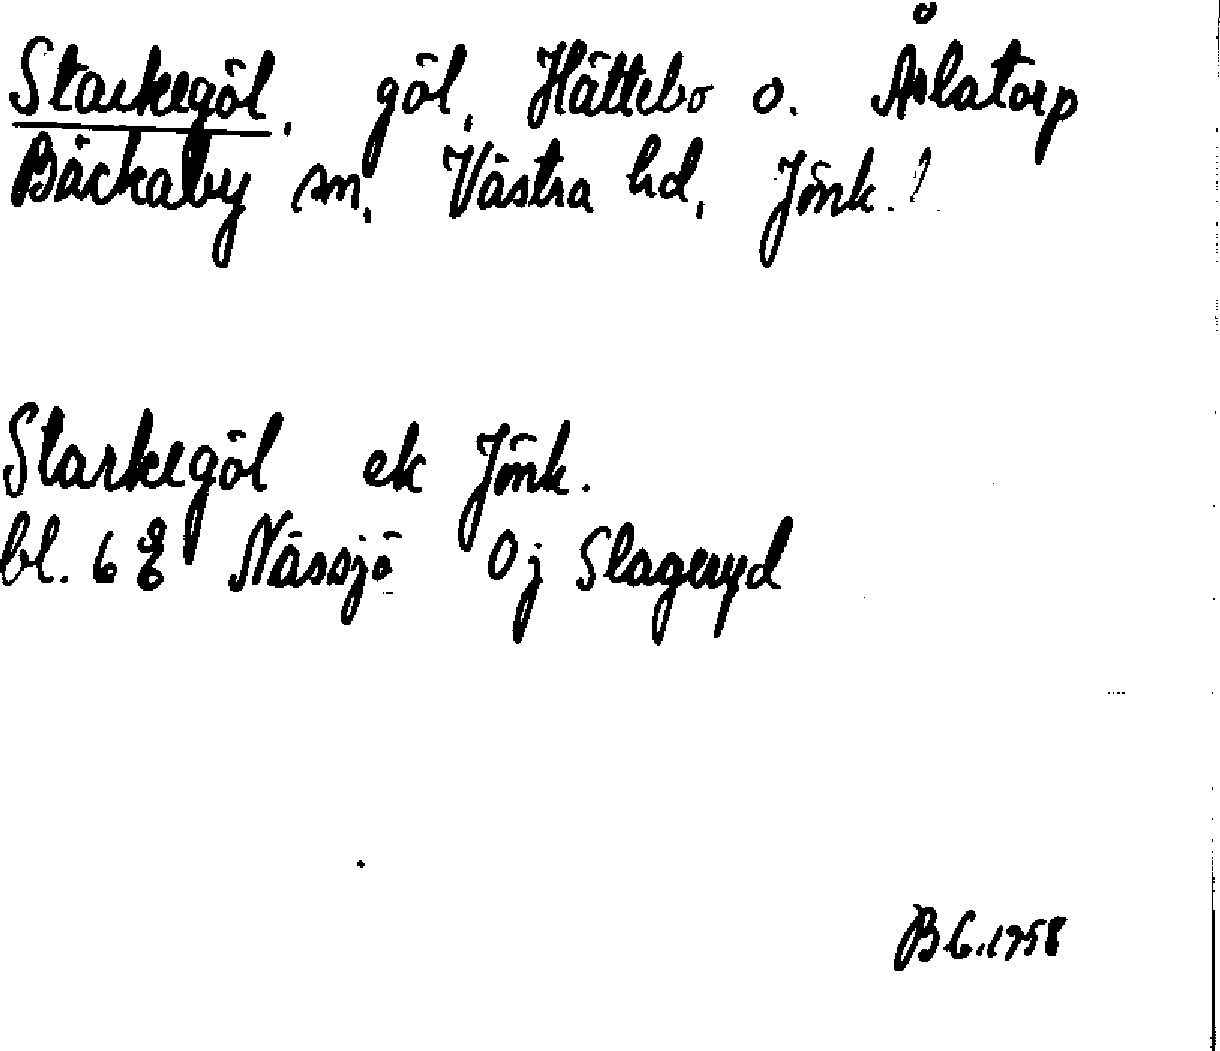 Starkegöl, göl, Hättebo o. Årlatorp
Bäckaby sn, Västra hd, Jönk. l.
Starkegöl ek Jönk.
bl. 6 E Nässjö 0j Slageryd
B.G. 1958